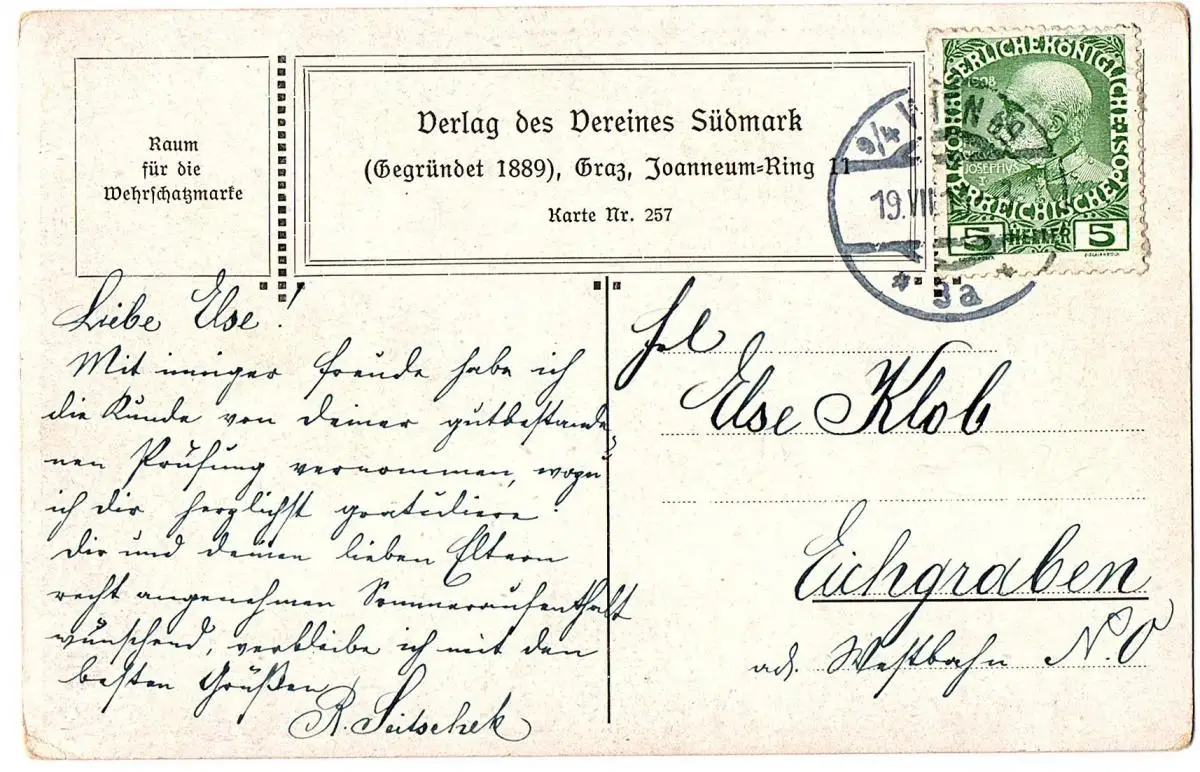 Raum
für die
Wehrschatzmarke
Verlag des Vereines Südmark
(Gegründet 1889), Graz, Joanneum-Ring 11
Karte Nr. 257
9/4 WIEN 69
19.VII
* 3a *
KAISERLICHEKÖNIGLICHEÖSTERREICHISCHEPOST
1908
JOSEPHVS I
5 HELLER 5
Liebe Else!
Mit inniger Freude habe ich
die Kunde von deiner gutbestande-
nen Prüfung vernommen, wozu
ich dir herzlichst gratuliere.
Dir und deinen lieben Eltern
recht angenehmen Sommeraufenthalt
wünschend, verbleibe ich mit den
besten Grüßen
R. Seitschek
Frl
Else Klob
Eichgraben
a.d. Westbahn N.Ö